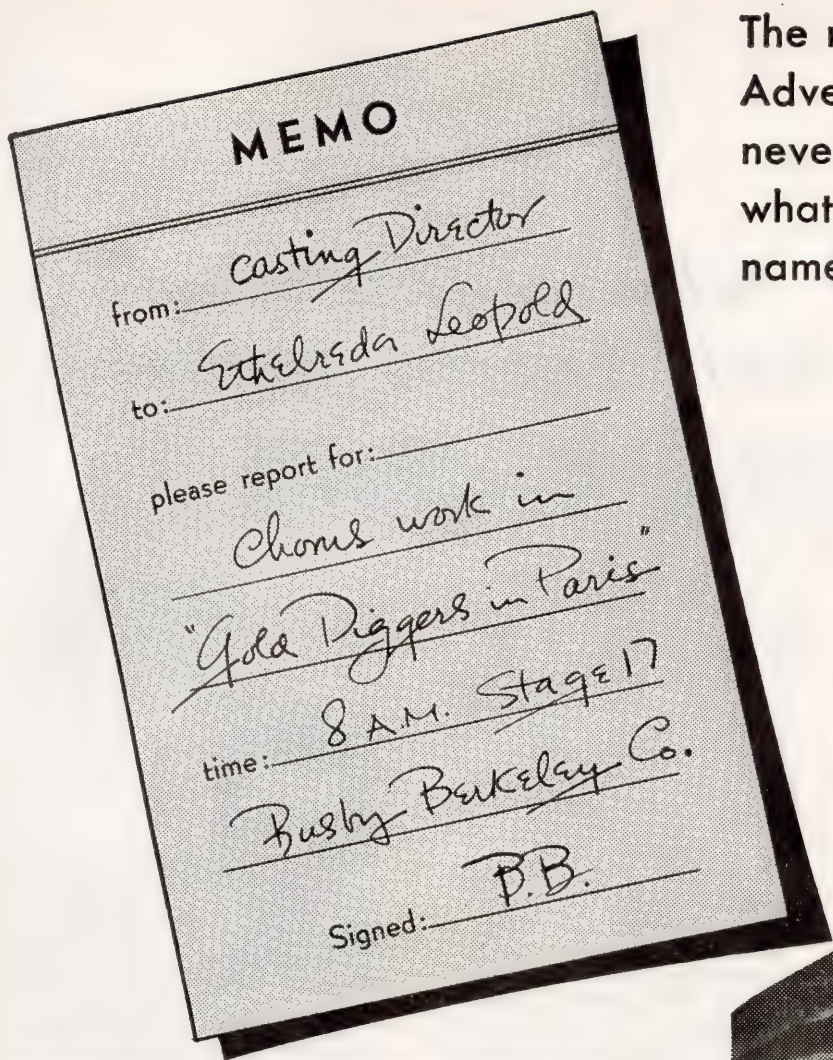 MEMO
from: Casting Director
to: Ethelreda Leopold
please report for:
Chorus work in
"Gold Diggers in Paris"
time: 8 A.M. Stage 17
Busby Berkeley Co.
Signed: B.B.
The
Adve
neve
what
name